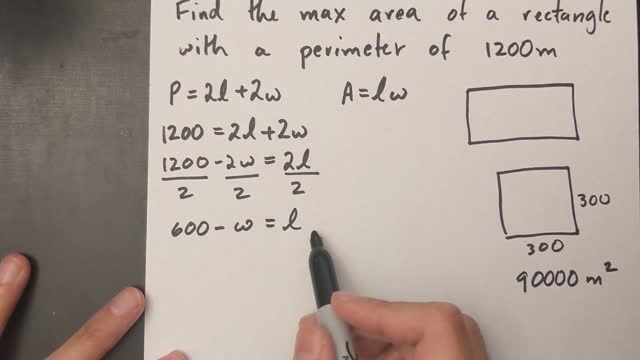 Find the max area of a rectangle
with a perimeter of 1200m
P = 2l + 2w
A = lw
1200 = 2l + 2w
1200 - 2w = 2l
2 2 2
600 - w = l
300
300
90000 m²